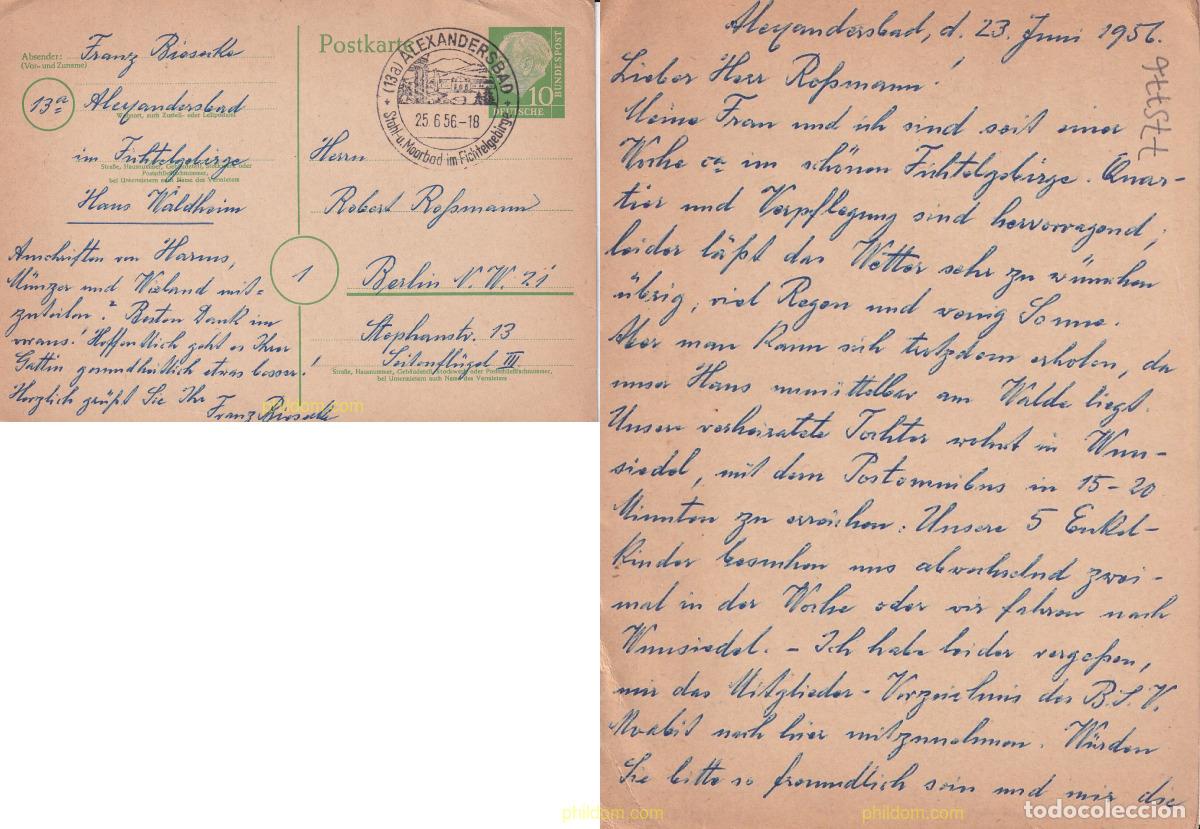 Absender:
(Vor- und Zuname)
Franz Biesecke
13a
Alexandersbad
Wohnort, auch Zustell- oder Leitpostamt
im Fichtelgebirge
Straße, Hausnummer, Gebäudeteil, Stockwerk oder
Postschließfachnummer,
bei Untermietern auch Name des Vermieters
Haus Waldheim
Anschriften von Harms,
Münzer und Wieland mit-
zuteilen? Besten Dank im
voraus! Hoffentlich geht es Ihrer
Gattin gesundheitlich etwas besser!
Herzlich grüßt Sie Ihr
Franz Biesecke
Postkarte
(13a) ALEXANDERSBAD
25.6.56.-18
Stahl u. Moorbad im Fichtelgebirge
10
DEUTSCHE
BUNDESPOST
Herrn
Robert Roßmann
1
Berlin N.W. 21
Stephanstr. 13
Seitenflügel III.
Straße, Hausnummer, Gebäudeteil, Stockwerk oder Postschließfachnummer,
bei Untermietern auch Name des Vermieters
phildom.com
Alexandersbad, d. 23. Juni 1956.
Lieber Herr Roßmann!
Meine Frau und ich sind seit einer
Woche ca im schönen Fichtelgebirge. Quar-
tier und Verpflegung sind hervorragend;
leider läßt das Wetter sehr zu wünschen
übrig, viel Regen und wenig Sonne.
Aber man kann sich trotzdem erholen, da
unser Haus unmittelbar am Walde liegt.
Unsere verheiratete Tochter wohnt in Wun-
siedel, mit dem Postomnibus in 15-20
Minuten zu erreichen. Unsere 5 Enkel-
kinder besuchen uns abwechselnd zwei-
mal in der Woche oder wir fahren nach
Wunsiedel. - Ich habe leider vergessen,
mir das Mitglieder-Verzeichnis des B.S.V.
Moabit nach hier mitzunehmen. Würden
Sie bitte so freundlich sein und mir die
phildom.com
phildom.com
todocoleccion